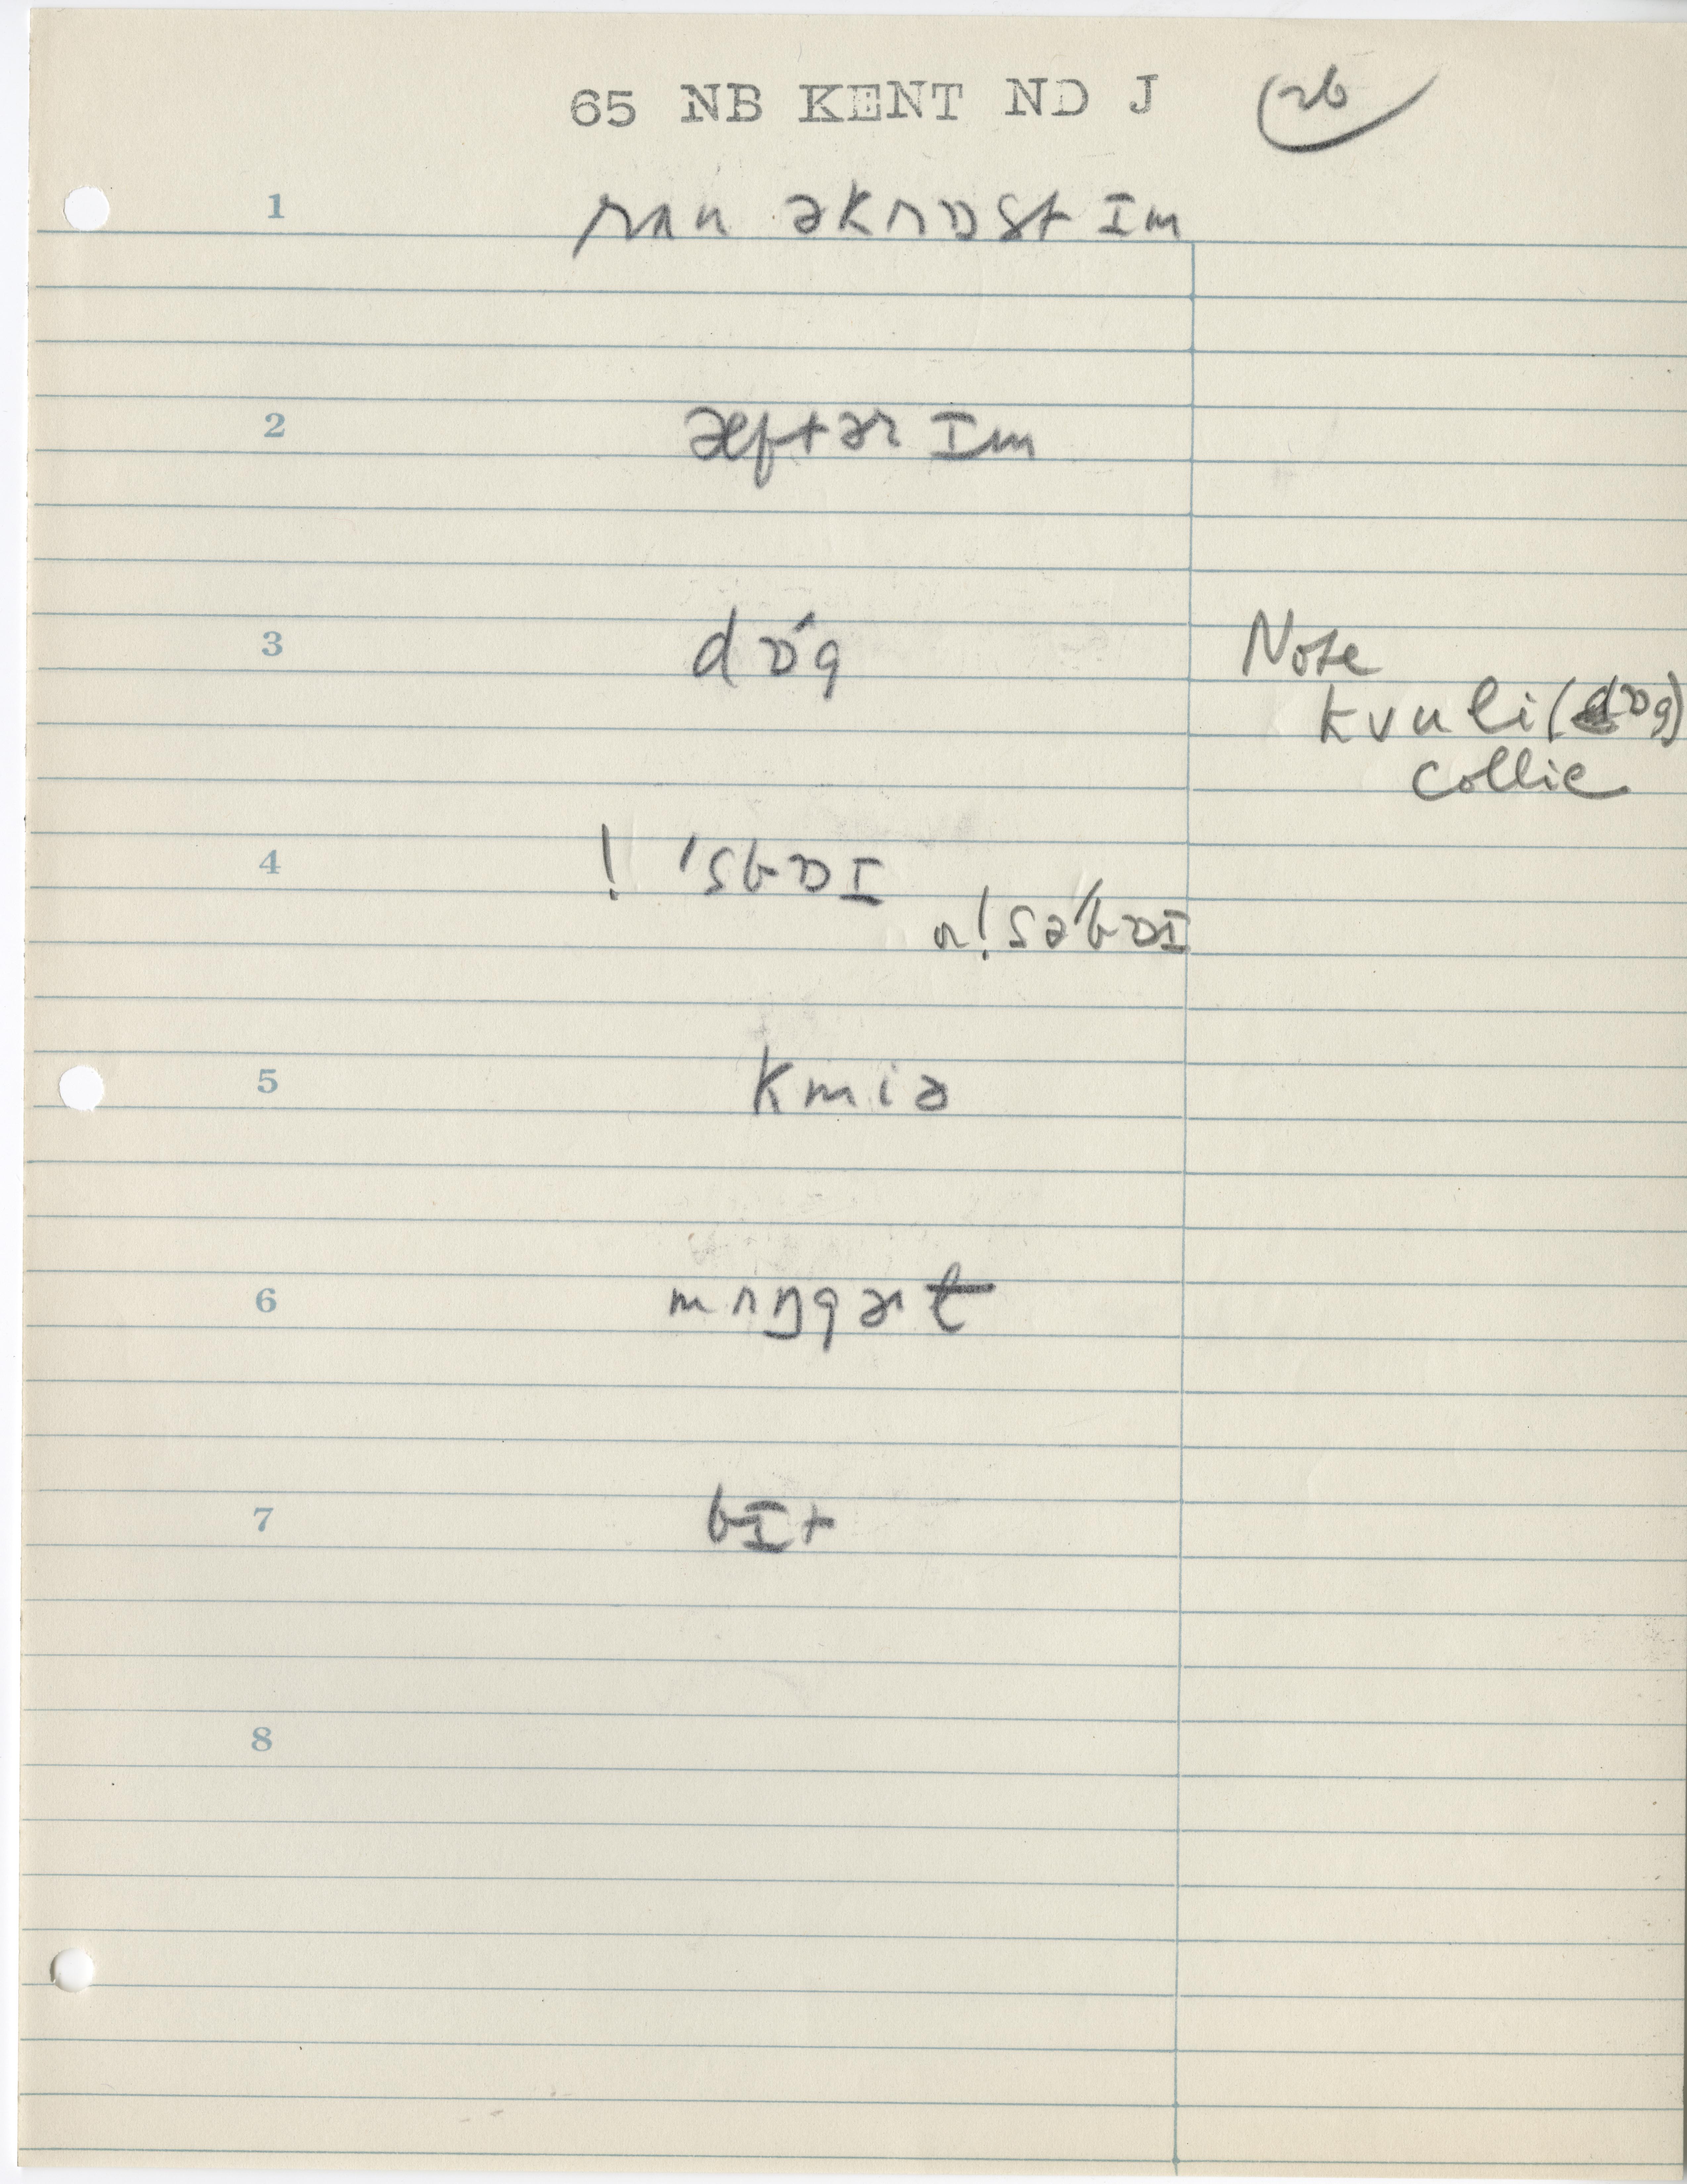 65 NB KENT ND J 26
1 rʌn əkrɒst ɪm
2 æftər ɪm
3 dɒ́g Note
kvuli (dɒg)
collie
4 ! 'sbɒɪ
n! sə'bɒɪ
5 kmiə
6 mʌŋgərt
7 bɪt
8